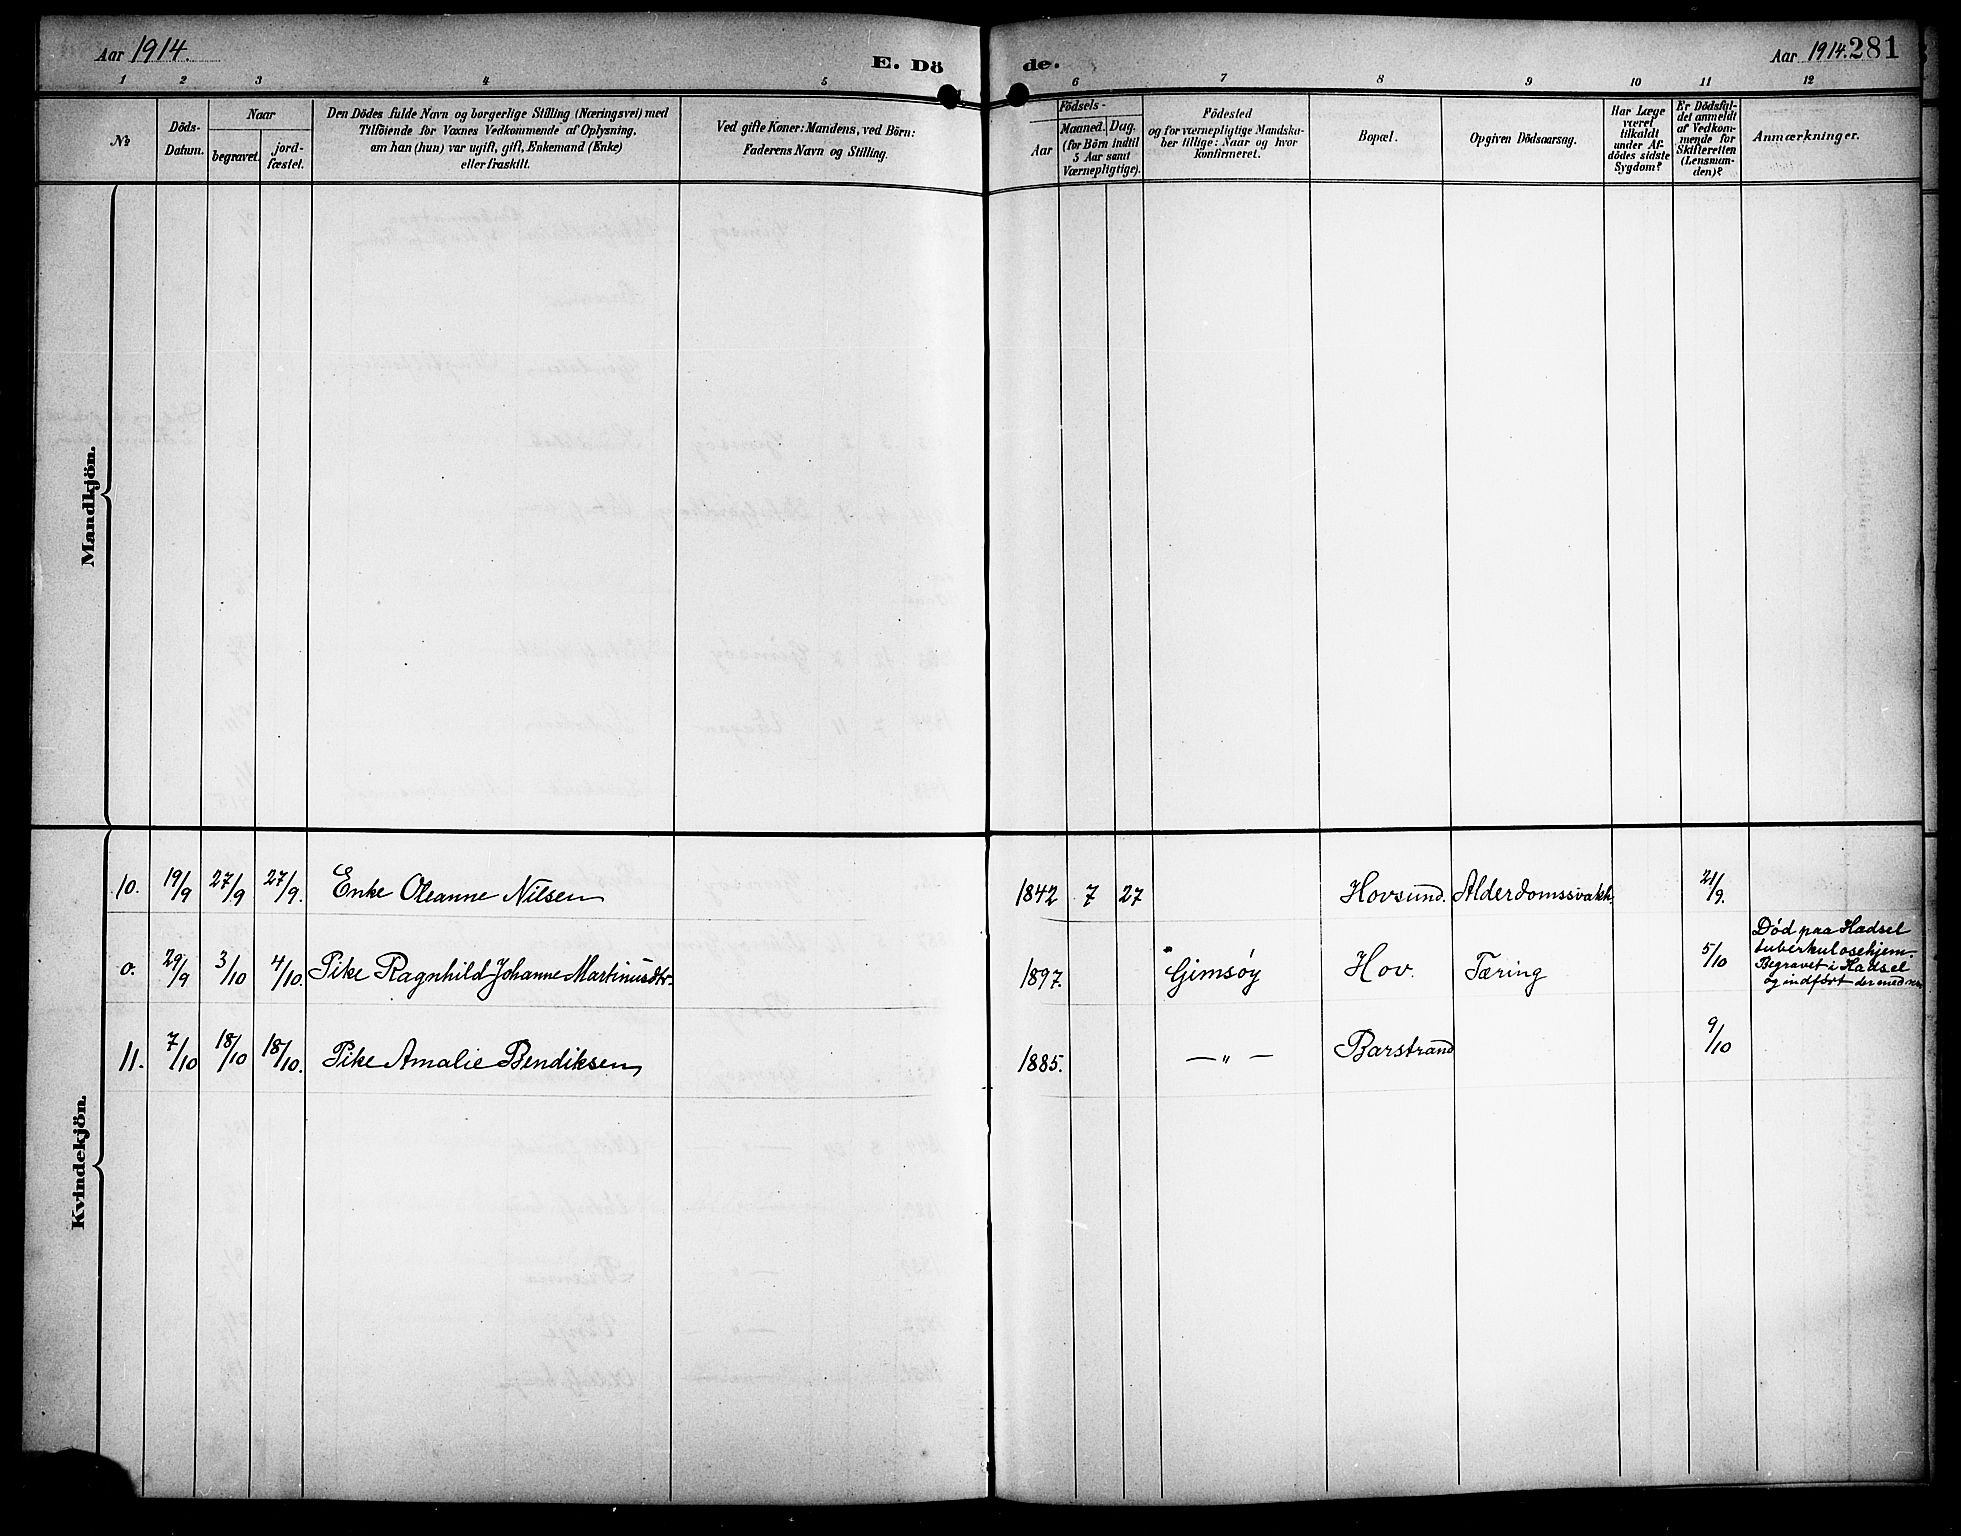 Aar 1914.
E. Dö de.
Aar 1914. 281
1 2 3 4 5 6 7 8 9 10 11 12
№
Döds-
Datum.
Naar
begravet.
jord-
fæstet.
Den Dödes fulde Navn og borgerlige Stilling (Næringsvei) med
Tilföiende for Voxnes Vedkommende af Oplysning.
om han (hun) var ugift, gift, Enkemand (Enke)
eller fraskilt.
Ved gifte Koner: Mandens, ved Börn:
Faderens Navn og Stilling.
Födsels-
Aar
Maaned.
Dag.
(for Börn indtil
5 Aar samt
Værnepligtige).
Födested
og for værnepligtige Mandska-
ber tillige: Naar og hvor
konfirmeret.
Bopæl.
Opgiven Dödsaarsag.
Har Læge
været
tilkaldt
under Af-
dödes sidste
Sygdom?
Er Dödsfal-
det anmeldt
af Vedkom-
mende for
Skifteretten
(Lensman-
den)?
Anmærkninger.
Mandkjön.
Kvindekjön.
10. 19/9 27/9 27/9. Enke Oleanne Nilsen 1842 7 27 Hovsund. Alderdomssvakh. 21/9.
0. 29/9 3/10 4/10. Pike Ragnhild Johanne Martinusdtr. 1897. Gimsøy Hov. Tæring 5/10
Død paa Hadsel
tuberkulosehjem.
Begravet i Hadsel
og indført der med
11. 7/10 18/10 18/10. Pike Amalie Bendiksen 1885. — „ — Barstrand 9/10